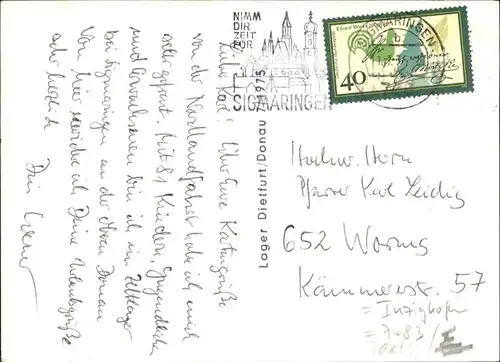 NIMM
DIR
ZEIT
FÜR
SIGMARINGEN
SIGMARINGEN
Eduard Mörike
40
Lager Dietfurt/Donau 1975
Lieber Karl! Über Eure Kartengrüße
von der Nordlandfahrt hab ich mich
sehr gefreut. Mit 81 Kindern, Jugendlichen
und Erwachsenen bin ich im Zeltlager
bei Sigmaringen an der oberen Donau.
Von hier schicke ich Deine Urlaubsgrüße
sehr herzlich
Dein
Hochw. Herrn
Pfarrer Karl Leidig
652 Worms
Kämmererstr. 57
= Inzigkofen
= 7483/